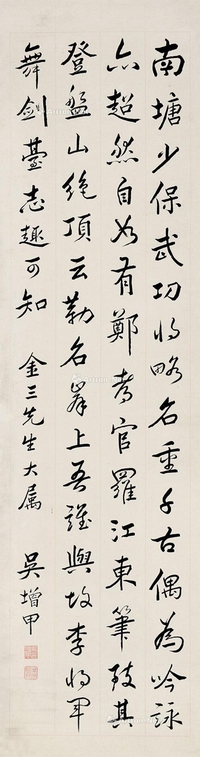 南塘少保武功將略名重千古偶為吟詠
亦超然自如有鄭考官羅江東筆致其
登盤山絕頂云勒名峯上吾誰與故李將軍
舞劍臺志趣可知 金三先生大属 吳增甲